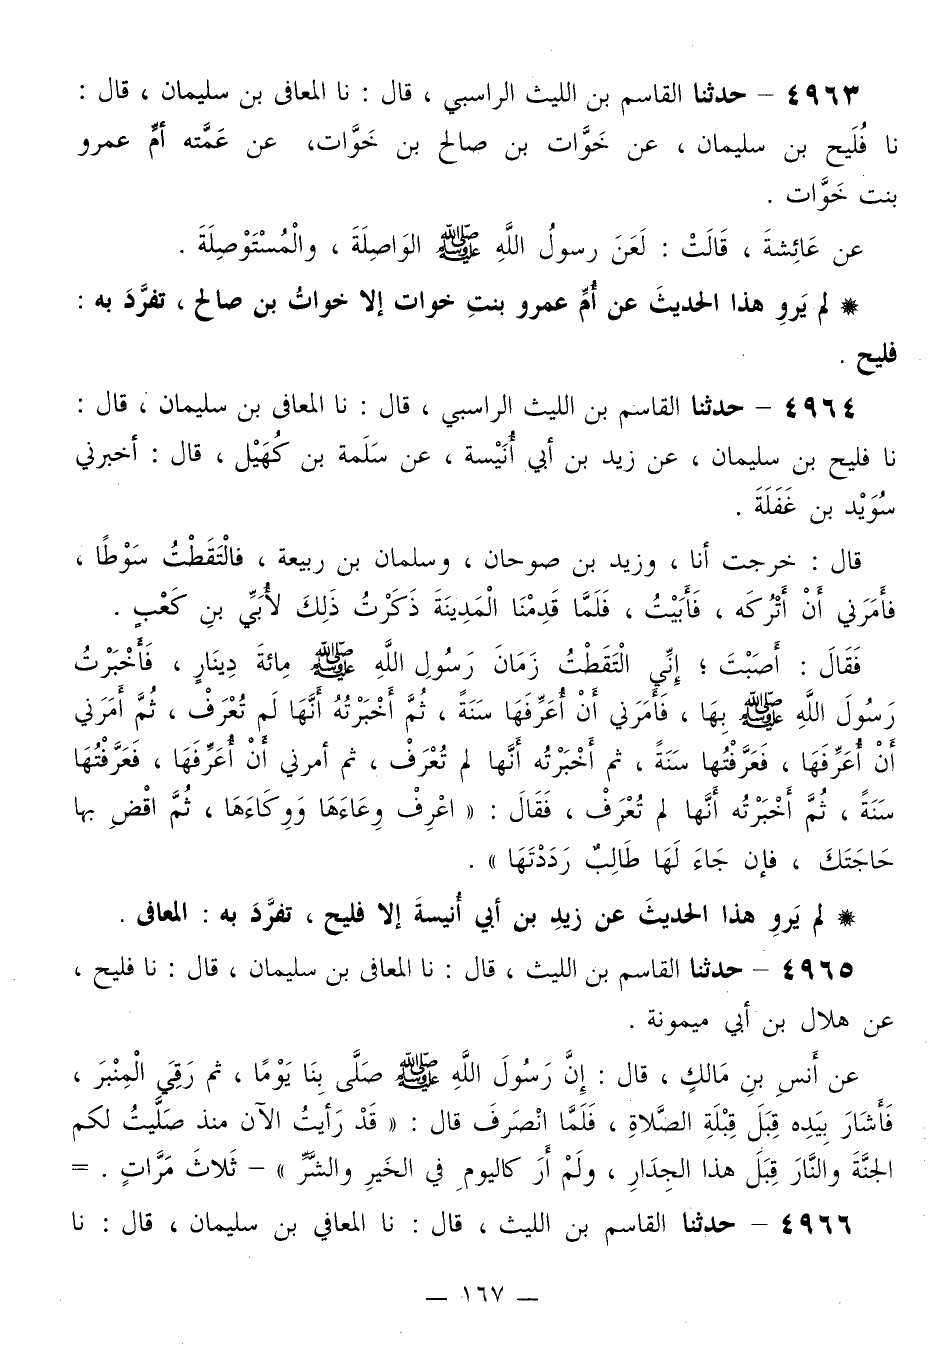 ٤٩٦٣ – حدثنا القاسم بن الليث الراسبي ، قال : نا المعافى بن سليمان ، قال :
نا فُلَيح بن سليمان ، عن خَوَّات بن صالح بن خَوَّات، عن عَمَّته أمِّ عمرو
بنت خَوَّات .
عن عَائِشةَ ، قَالَتْ : لَعَنَ رسولُ اللَّهِ ﷺ الوَاصِلَةَ ، والْمُسْتَوْصِلَةَ .
* لم يَروِ هذا الحديثَ عن أُمِّ عمرو بنتِ خوات إلا خواتُ بن صالح ، تفرَّدَ به :
فليح .
٤٩٦٤ – حدثنا القاسم بن الليث الراسبي ، قال : نا المعافى بن سليمان ، قال :
نا فليح بن سليمان ، عن زيد بن أبي أُنَيْسة ، عن سَلَمة بن كُهَيْل ، قال : أخبرني
سُوَيْد بن غَفَلَةَ .
قال : خرجت أنا ، وزيد بن صوحان ، وسلمان بن ربيعة ، فالْتَقَطْتُ سَوْطًا ،
فأمَرَني أَنْ أَتْرُكَه ، فَأَبَيْتُ ، فَلَمَّا قَدِمْنَا الْمَدِينَةَ ذَكَرْتُ ذَلِكَ لأُبَيِّ بنِ كَعْبٍ .
فَقَالَ : أَصَبْتَ ؛ إِنِّي الْتَقَطْتُ زَمَانَ رَسُولِ اللَّهِ ﷺ مِائةَ دِينَارٍ ، فَأَخْبَرْتُ
رَسُولَ اللَّهِ ﷺ بِهَا ، فَأَمَرَني أَنْ أُعَرِّفَهَا سَنَةً ، ثُمَّ أَخْبَرْتُهُ أَنَّهَا لَم تُعْرَفْ ، ثُمَّ أَمَرَني
أَنْ أُعَرِّفَهَا ، فَعَرَّفْتُها سَنَةً ، ثم أَخْبَرْتُه أنَّها لم تُعْرَفْ ، ثم أمرني أَنْ أُعَرِّفَهَا ، فَعَرَّفْتُهَا
سَنَةً ، ثُمَّ أَخْبَرْتُه أَنَّها لم تُعْرَفْ ، فَقَالَ : « اعْرِفْ وِعَاءَهَا وَوِكَاءَهَا ، ثُمَّ اقْضِ بها
حَاجَتَكَ ، فإن جَاءَ لَهَا طَالِبٌ رَدَدْتَهَا » .
* لم يَروِ هذا الحديثَ عن زيدِ بن أبي أُنيسةَ إلا فليح ، تفرَّدَ به : المعافى .
٤٩٦٥ – حدثنا القاسم بن الليث ، قال : نا المعافى بن سليمان ، قال : نا فليح ،
عن هلال بن أبي ميمونة .
عن أَنسِ بنِ مَالكٍ ، قال : إِنَّ رَسُولَ اللَّهِ ﷺ صَلَّى بِنَا يَوْمًا ، ثم رَقِيَ الْمِنْبَرَ ،
فَأَشَارَ بِيَدِه قِبَلَ قِبْلَةِ الصَّلاةِ ، فَلَمَّا انْصَرَفَ قال : « قَدْ رَأيتُ الآن منذ صَلَّيتُ لكم
الجنَّةَ والنَّارَ قِبَلَ هذا الجِدَارِ ، ولَمْ أَرَ كاليومِ في الخَيرِ والشَّرِّ » – ثَلاثَ مَرَّاتٍ . =
٤٩٦٦ – حدثنا القاسم بن الليث ، قال : نا المعافي بن سليمان ، قال : نا
– ١٦٧ –